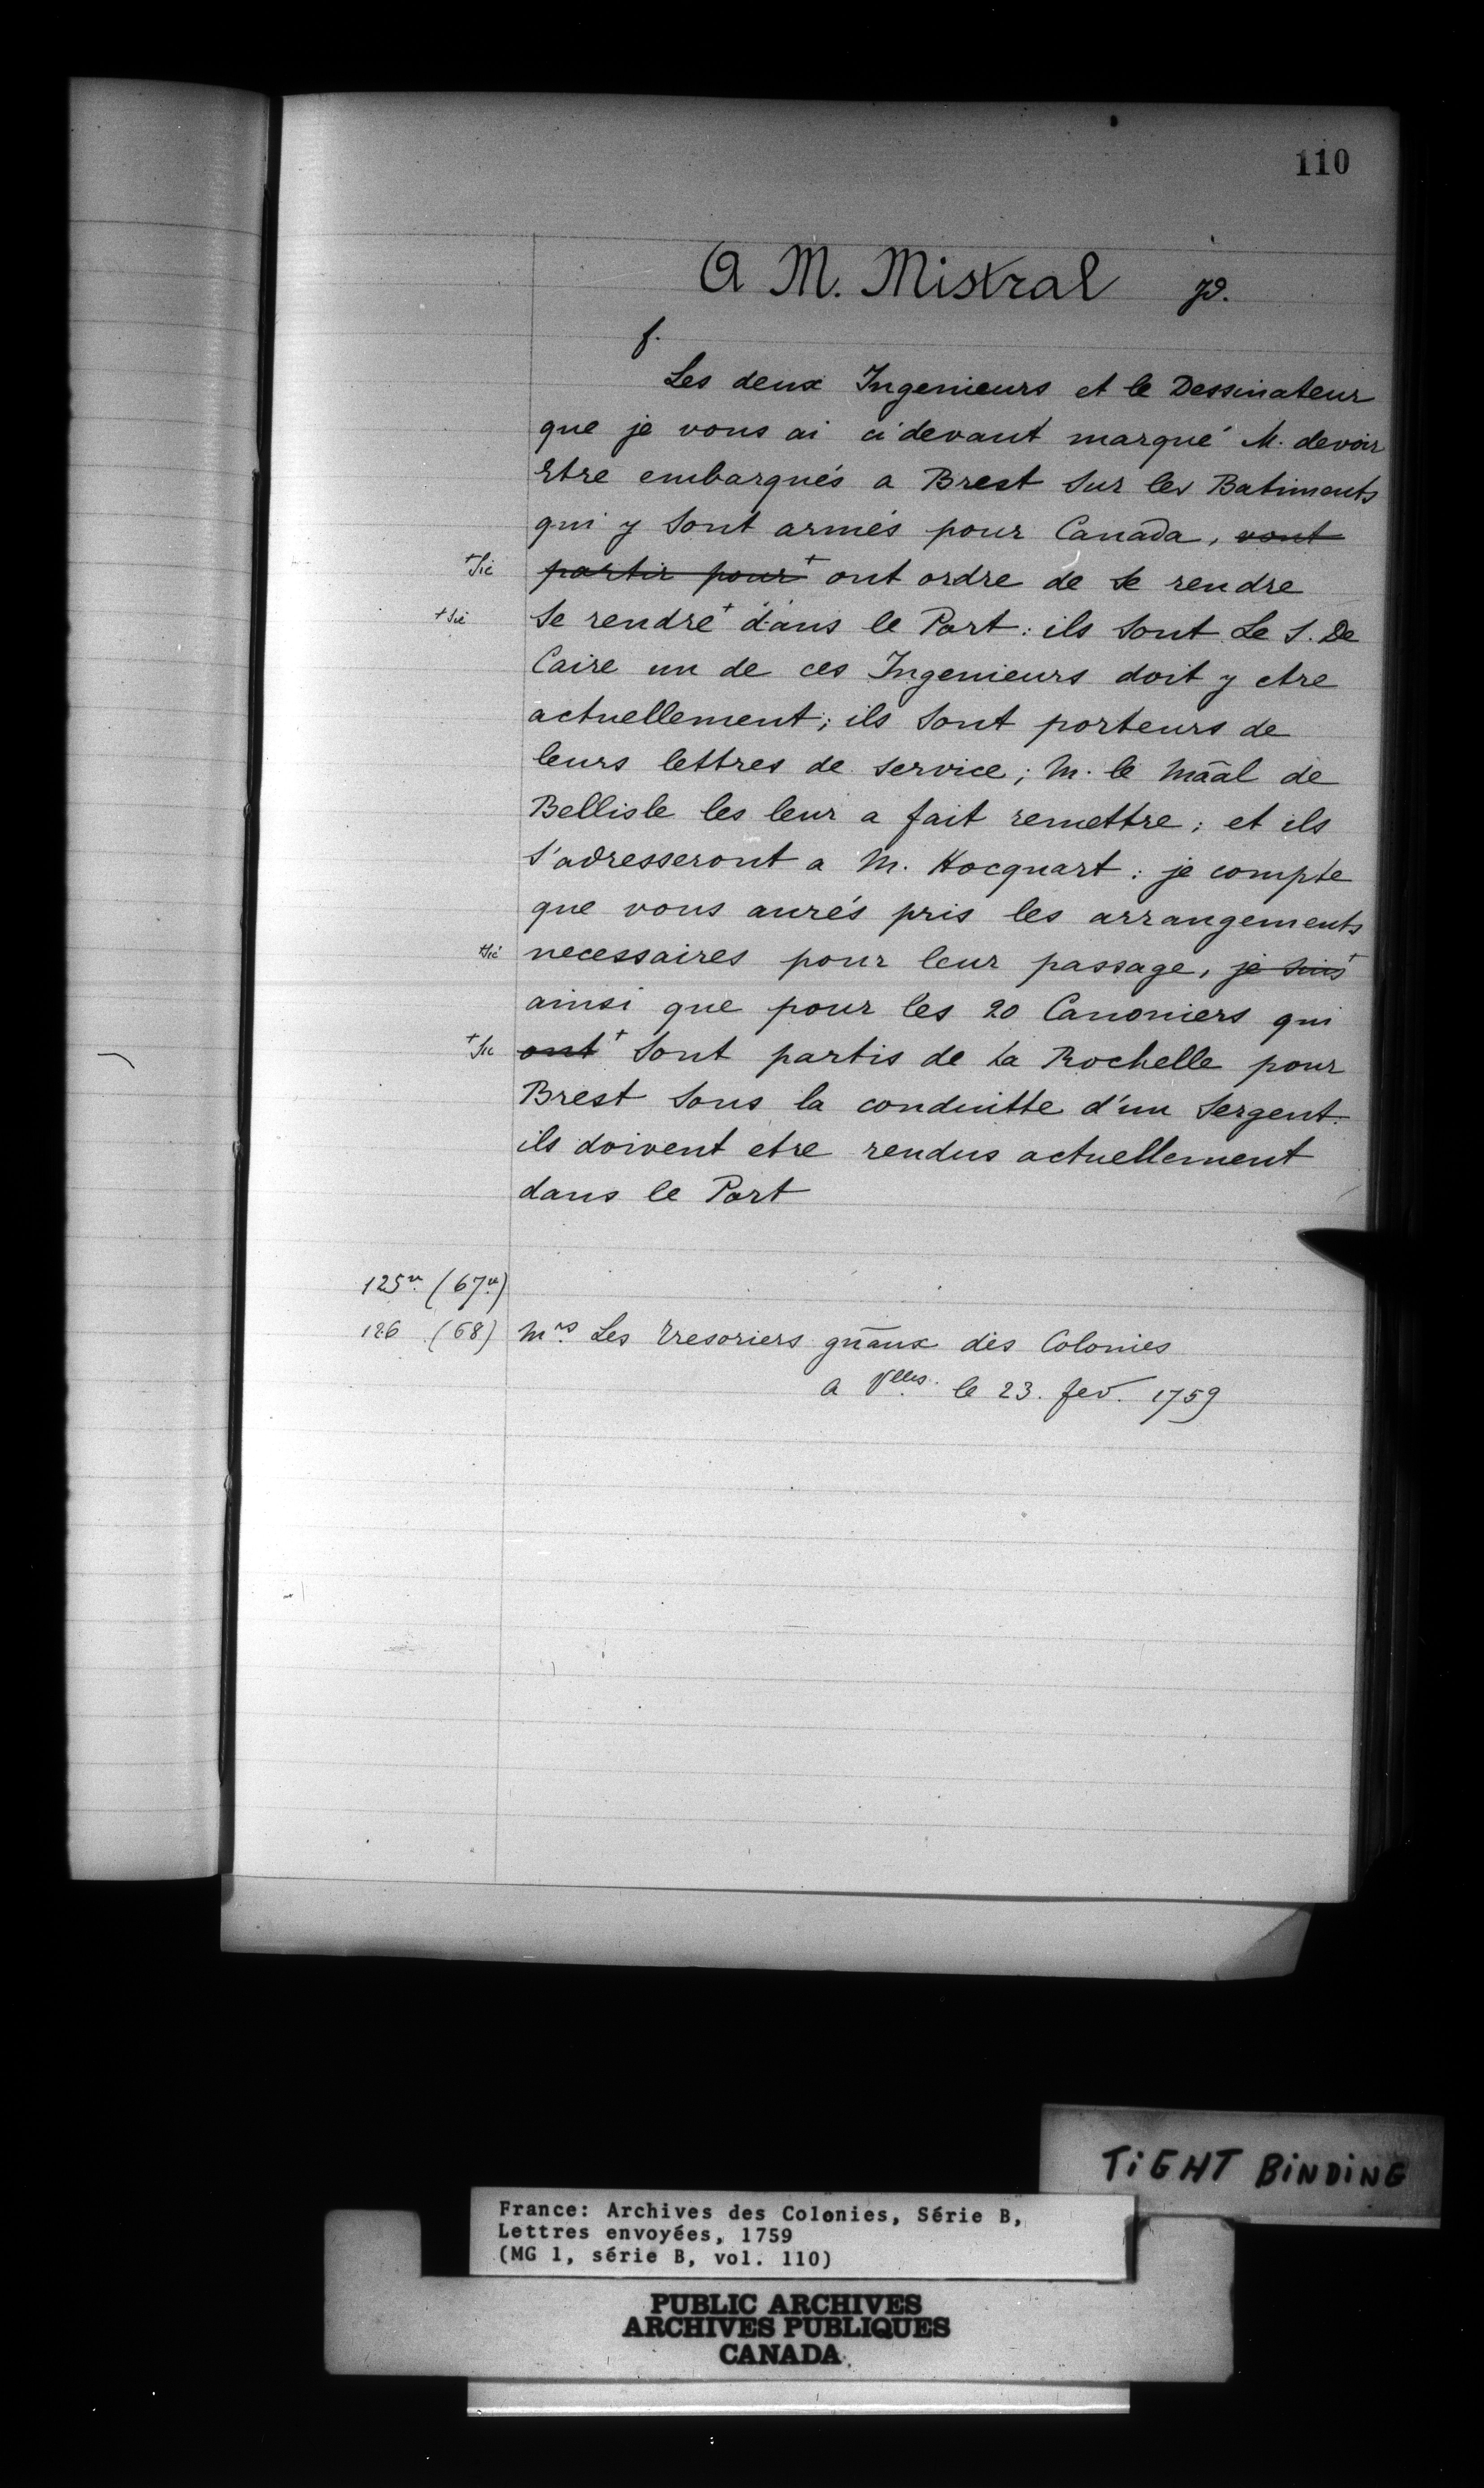 110
A M. Mistral
f.
Les deux Ingenieurs et le Dessinateur
que je vous ai ci devant marqué M. devoir
Etre embarqués a Brest Sur les Batiments
qui y Sont armés pour Canada, vont
+Sic partir pour+ ont ordre de Se rendre
+Sic Se rendre+ dans le Port: ils Sont Le S. De
Caire un de ces Ingenieurs doit y etre
actuellement; ils Sont porteurs de
leurs lettres de service; M. le Māal de
Bellisle les leur a fait remettre; et ils
S'adresseront a M. Hocquart: je compte
que vous aurés pris les arrangements
+Sic necessaires pour leur passage, je suis+
ainsi que pour les 20 Canoniers qui
+Sic ont+ Sont partis de La Rochelle pour
Brest Sous la conduitte d'un Sergent.
ils doivent etre rendus actuellement
dans le Port
125vo. (67vo.)
126 (68) Mrs. Les Tresoriers gñaux des Colonies
A Vlles. le 23. fev. 1759
TIGHT BINDING
France: Archives des Colonies, Série B,
Lettres envoyées, 1759
(MG 1, série B, vol. 110)
PUBLIC ARCHIVES
ARCHIVES PUBLIQUES
CANADA